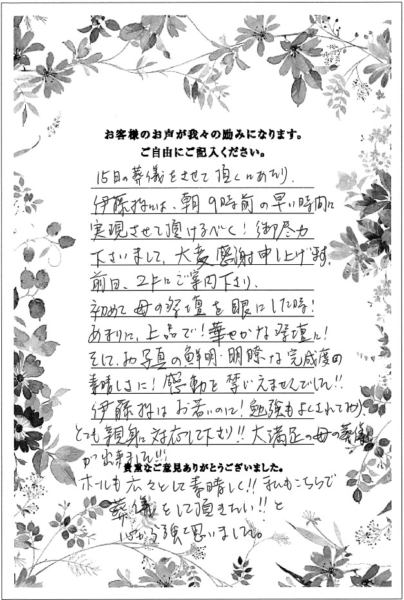 お客様のお声が我々の励みになります。
ご自由にご記入ください。
15日の葬儀をさせて頂くにあたり、
伊藤様には、朝9時前の早い時間に
実現させて頂けるべく！御尽力
下さいまして、大変感謝申し上げます。
前日、2Fにご案内下さり、
初めて母の祭壇を眼にした時！
あまりに、上品で！華やかな祭壇に！
そして、お写真の鮮明・明瞭な完成度の
素晴しさに！感動を禁じえませんでした!!
伊藤様はお若いのに！勉強もよくされており、
とても親身に対応して下さり!!大満足の母の葬儀
が出来ました!!!
貴重なご意見ありがとうございました。
ホールも広々として素晴しく!!私もこちらで
葬儀をして頂きたい!!と
心から強く思いました。